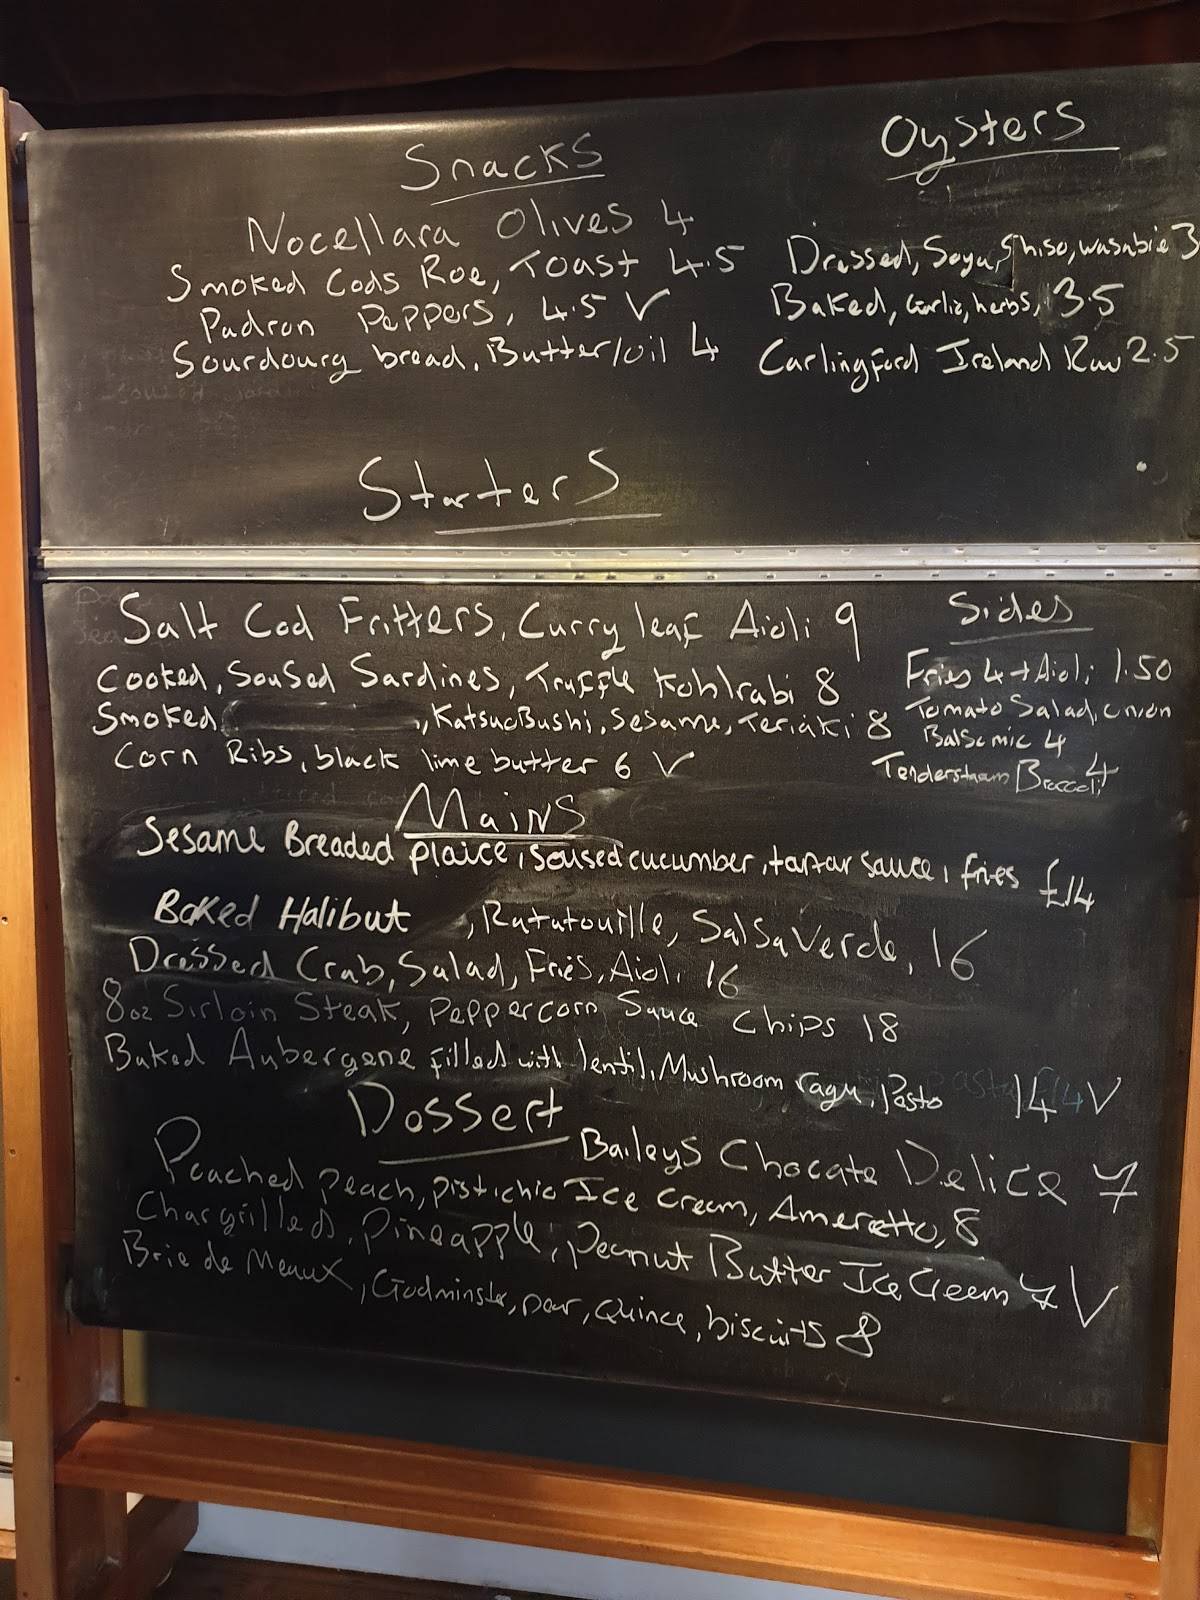 Snacks
Nocellara Olives 4
Smoked Cods Roe, Toast 4.5
Padron Peppers, 4.5 V
Sourdourg bread, Butter/oil 4
Oysters
Dressed, Soya, Shiso, wasabie 3
Baked, Garlic, herbs, 3.5
Carlingford Ireland Raw 2.5
Starters
Salt Cod Fritters, Curry leaf Aioli 9
Cooked, Soused Sardines, Truffle Kohlrabi 8
Smoked , KatsuoBushi, Sesame, Teriaki 8
Corn Ribs, black lime butter 6 V
Sides
Fries 4 + Aioli 1.50
Tomato Salad, onion
Balsamic 4
Tenderstem Broccoli 4
Mains
Sesame Breaded plaice, soused cucumber, tartar sauce, fries £14
Baked Halibut , Ratatouille, Salsa Verde, 16
Dressed Crab, Salad, Fries, Aioli 16
8oz Sirloin Steak, Peppercorn Sauce Chips 18
Baked Aubergene filled with lentil, Mushroom ragu, Pasto 14 V
Dessert
Baileys Chocate Delice 7
Poached peach, pistichio Ice Cream, Ameretto, 8
Chargrilled, Pineapple, Peanut Butter Ice Cream 7 V
Brie de Meaux, Godminster, pear, Quince, biscuits 8